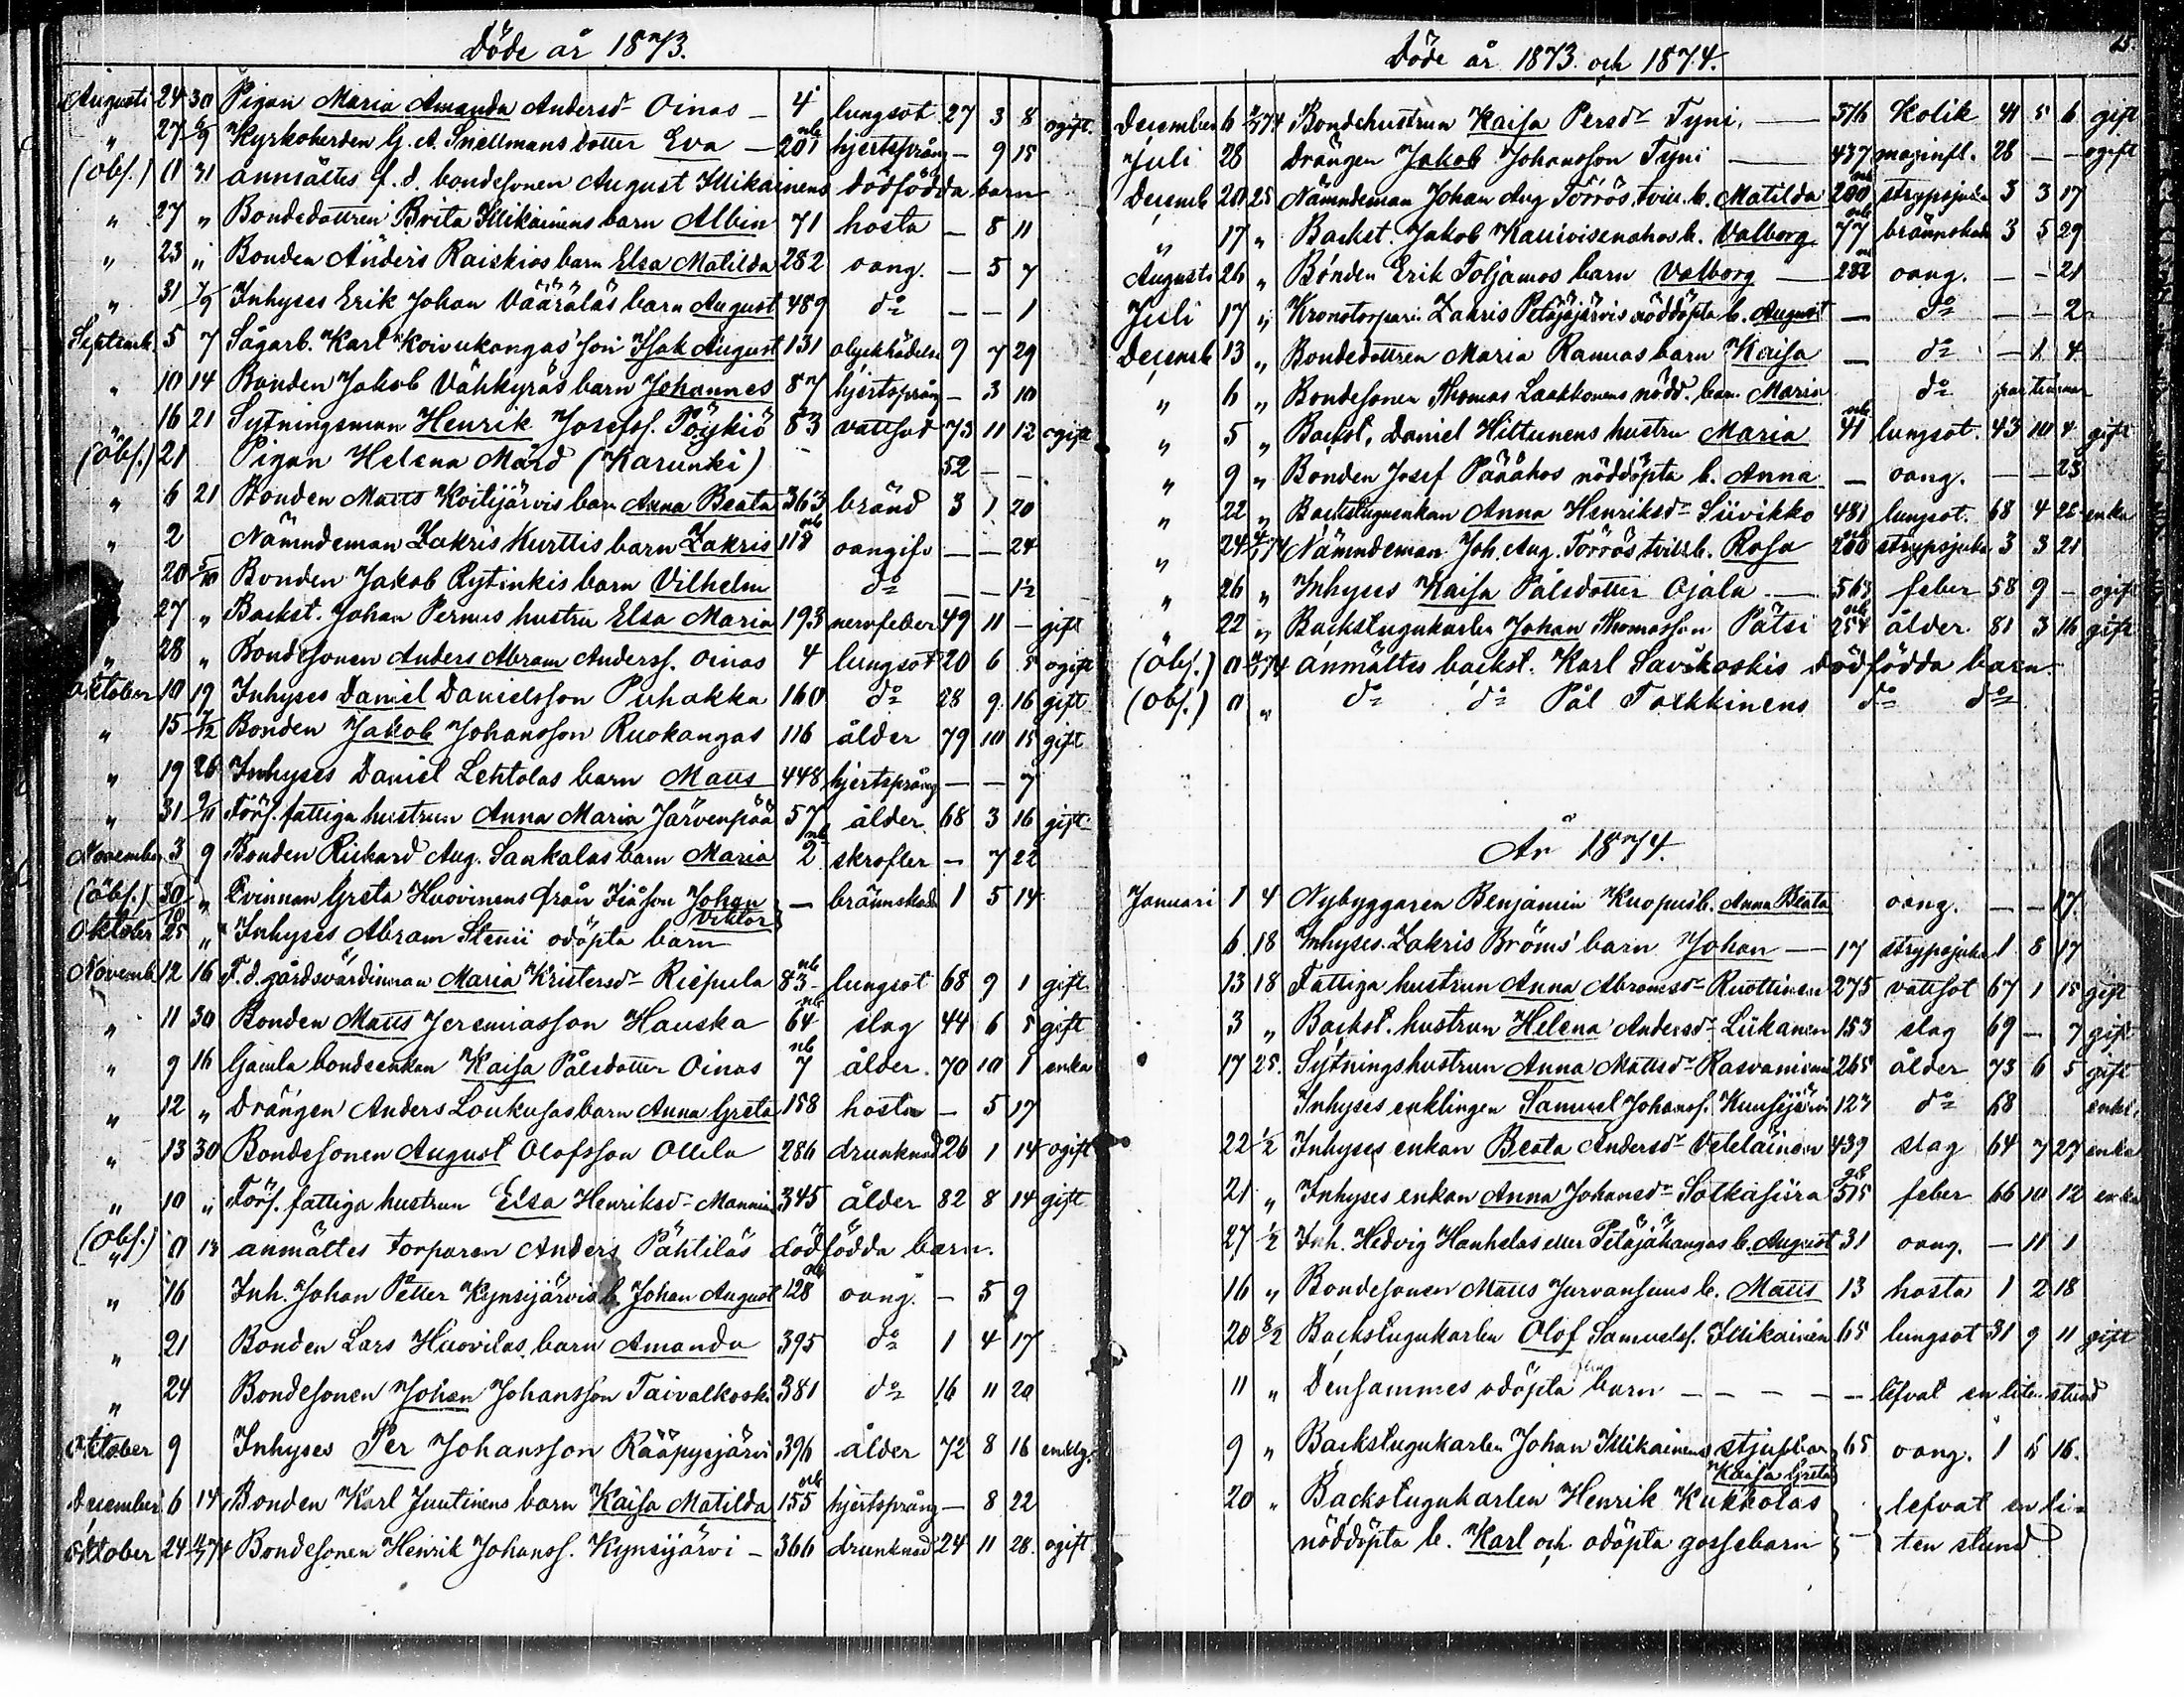 Döde år 1873.
Augusti 24 30 Pigan Maria Amanda Andersdr Oinas - 4 lungsot 27 3 8 ogift
" 27 6/9 Kyrkoherden G. A. Snellmans dotter Eva - 201 hjertsprång - 9 15
(Obs.) 0 31 anmältes f. d. bondesonen August Illikainens dödfödda barn
" 27 " Bondedottren Brita Illikainens barn Albin 71 hosta - 8 11
" 23 " Bonden Anders Raiskios barn Elsa Matilda 282 oang. - 5 7
" 31 7/9 Inhyses Erik Johan Vääräläs barn August 489 do - - 1
Septemb. 5 7 Sågarb. Karl Koivukangas' son Isak August 131 olyckshändelse 9 7 29
" 10 14 Bonden Jakob Vähkyräs barn Johannes 87 hjertsprång - 3 10
" 16 21 Sytningsman Henrik Josefss. Pöykiö 83 vattsot 73 11 12 ogift
(Obs.) 21 Pigan Helena Mård (Karunki) 52 - -
" 6 21 Bonden Matts Koitijärvis barn Anna Beata 363 bränd 3 1 20
" 2 Nämndeman Zakris Kurttis barn Zakris 118 oangifv - - 24
20 5/10 Bonden Jakob Rytinkis barn Vilhelm do - - 1/2
27 " Backst. Johan Pernus hustru Elsa Maria 193 nervfeber 49 11 - gift
" 28 " Bondesonen Anders Abram Anderss. Oinas 4 lungsot 20 6 5 ogift
Oktober 10 19 Inhyses Daniel Danielsson Puhakka 160 do 28 9 16 gift
" 15 7/12 Bonden Jakob Johansson Ruokangas 116 ålder 79 10 15 gift
" 19 26 Inhyses Daniel Lehtolas barn Matts 448 hjertsprång - - 7
" 31 9/11 Förs. fattiga hustrun Anna Maria Järvenpää 57 ålder 68 3 16 gift
November 3 9 Bonden Rickard Aug. Sankalas barn Maria 2 skrofler - 7 22
(Obs.) 30/10 " Qvinnan Greta Huovinens från Ijå son Johan Viktor - brännskada 1 5 14
Oktober 25 " Inhyses Abram Stenii odöpta barn
Novemb. 12 16 F. d. gårdsvärdinnan Maria Kristersdr Riepula 83 lungsot 68 9 1 gift
" 11 30 Bonden Matts Jeremiasson Hauska 64 slag 44 6 5 gift
" 9 16 Gamla bondeenkan Kaisa Pålsdotter Oinas 7 ålder 70 10 1 enka
" 12 " Drängen Anders Loukusas barn Anna Greta 158 hosta - 5 17
" 13 30 Bondesonen August Olofsson Ollila 286 drunknad 26 1 14 ogift
" 10 " Förs. fattiga hustrun Elsa Henriksdr 345 ålder 82 8 14 gift
(Obs.) " 0 13 anmältes torparen Anders Pähtiläs dödfödda barn.
" 16 Inh. Johan Petter Kynsijärvis b. Johan August 128 oang. - 5 9
" 21 Bonden Lars Huovilas barn Amanda 395 do 1 4 17
" 24 Bondesonen Johan Johansson Taivalkoski 381 do 16 11 20
Oktober 9 Inhyses Per Johansson Rääpysjärvi 396 ålder 72 8 16 enklg.
December 6 14 Bonden Karl Juutinens barn Kaisa Matilda 155 hjertsprång - 8 22
Oktober 24 74 Bondesonen Henrik Johanss. Kynsijärvi - 366 drunknad 24 11 28. ogift
15.
Döde år 1873 och 1874.
December 6 74 Bondehustrun Kaisa Persdr Tyni. - 376 kolik 41 5 6 gift
Juli 28 Drängen Jakob Johansson Tyni - 437 maginfl. 28 - - ogift
Decemb. 20 25 Nämndeman Johan Aug Törrös, tvill. b. Matilda 200 strypsjuka 3 3 17
" 17 " Backst. Jakob b. Valborg 77 brännskada 3 5 29
Augusti 26 " Bonden Erik Toljamos barn Valborg - 282 oang. - - 21
Juli 17 " Kronotorparen Zakris Petäjäjärvis nöddöpta b. August - do - - 2
Decemb. 13 " Bondedottren Maria Ranuas barn Kaisa - do - 1 4
" 6 " Bondesonen Thomas Laakkonens nödd. barn Maria do par timmar
" 5 " Backst. Daniel Hiltunens hustru Maria 41 lungsot. 43 10 4 gift
" 9 " Bonden Josef Pääähos nöddöpta b. Anna - oang. - - 23
" 22 " Backstuguenkan Anna Henriksdr Siivikko 481 lungsot. 68 4 22 enka
" 24 74 Nämndeman Joh. Aug. Törrös tvill. b. Rosa 200 strypsjuka 3 3 21
" 26 " Inhyses Kaisa Pålsdotter Ojala - 563 feber 58 9 - ogift
" 22 " Backstugukarlen Johan Thomasson Pätsi 254 ålder 81 3 16 gift
(Obs.) 0 74 anmältes backst. Karl Savikoskis dödfödda barn.
(Obs.) 0 " do do Pål Torkkinens do do
År 1874.
Januari 1 4 Nybyggaren Benjamin Kuopus b. Anna Beata oang. - - 17.
6 18 Inhyses Zakris Bröms' barn Johan - 17 strypsjuka 1 8 17
13 18 Fattiga hustrun Anna Abramsdr Ruottinen 275 vattsot 67 1 15 gift
3 " Backst. hustrun Helena Andersdr Liikanen 153 slag 69 - 7 gift
17 25. Sytningshustrun Anna Mattsdr 265 ålder 73 6 5 gift
Inhyses enklingen Samuel Johanss. Kuusijärvi 123 do 68 enkl.
22 1/2 Inhyses enkan Beata Andersdr Veteläinen 439 slag 64 7 27 enka
21 " Inhyses enkan Anna Johansdr Sotkasiira 515 feber 66 10 12 enka
27 1/2 Inh. Hedvig Hanhelas eller Petäjäkangas b. August 31 oang. - 11 1
16 " Bondesonen Matts Jurvansuus b. Matts 13 hosta 1 2 18
20 8/2 Backstugukarlen Olof Samuelss. Illikainen 65 lungsot 31 9 11 gift
11 " Densammes odöpta barn - - - - - lefvat en liten stund
9 " Backstugukarlen Johan Illikainens stjufbar Kaisa Greta 65 oang. 1 5 16.
20 " Backstugukarlen Henrik Kukkolas lefvat en li-
nöddöpta b. Karl och odöpta gossebarn - ten stund